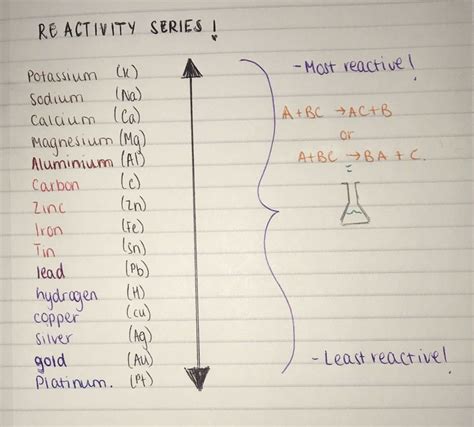 REACTIVITY SERIES!
Potassium (K)
Sodium (Na)
Calcium (Ca)
Magnesium (Mg)
Aluminium (Al)
Carbon (C)
Zinc (Zn)
Iron (Fe)
Tin (Sn)
lead (Pb)
hydrogen (H)
copper (Cu)
silver (Ag)
gold (Au)
Platinum. (Pt)
- Most reactive!
A+BC → AC+B
or
A+BC → BA + C.
- Least reactive!